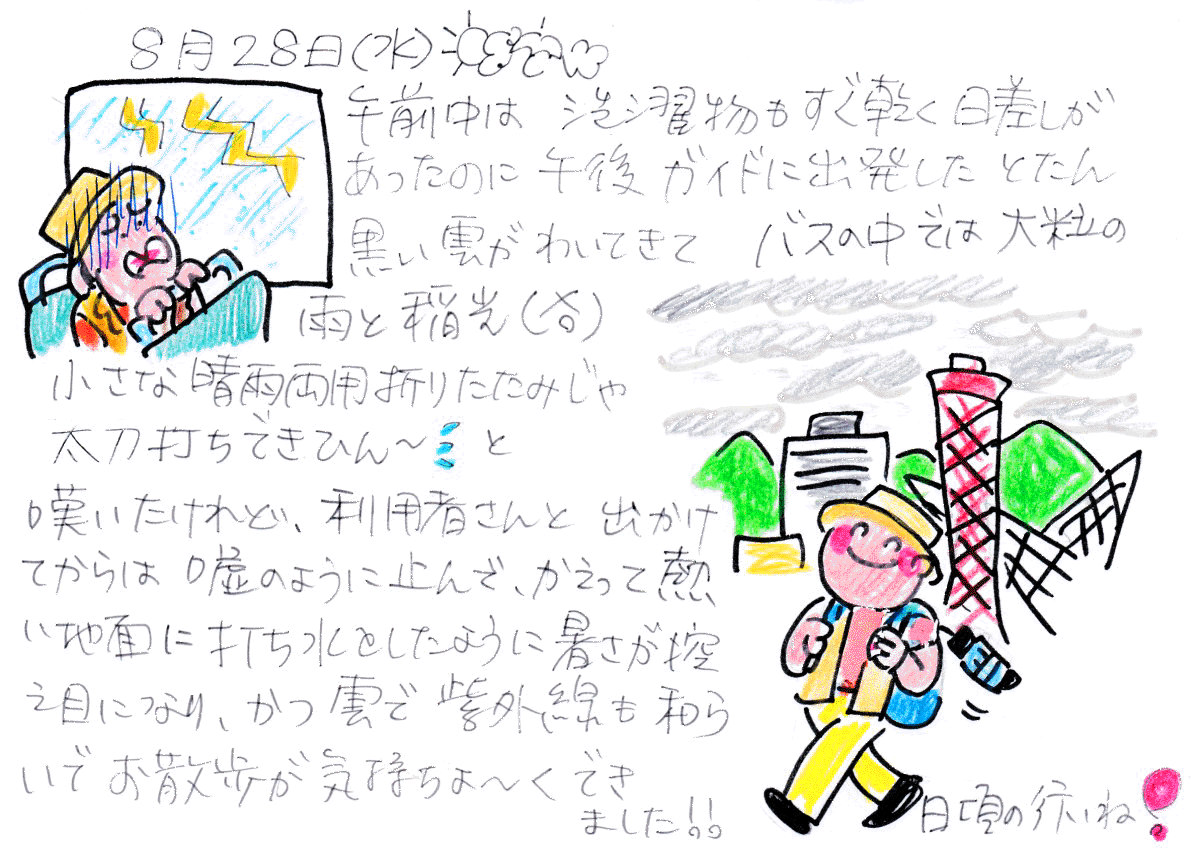 8月28日(水)
午前中は 洗濯物もすぐ乾く日差しが
あったのに 午後 ガイドに出発したとたん
黒い雲がわいてきて バスの中では 大粒の
雨と稲光(谷)
小さな晴雨両用折りたたみじゃ
太刀打ちできひん〜と
嘆いたけれど、利用者さんと 出かけ
てからは 嘘のように止んで、かえって熱
い地面に打ち水をしたように暑さが控
え目になり、かつ雲で紫外線も和ら
いで お散歩が 気持ちよ〜く でき
ました!!
日頃の行いね!